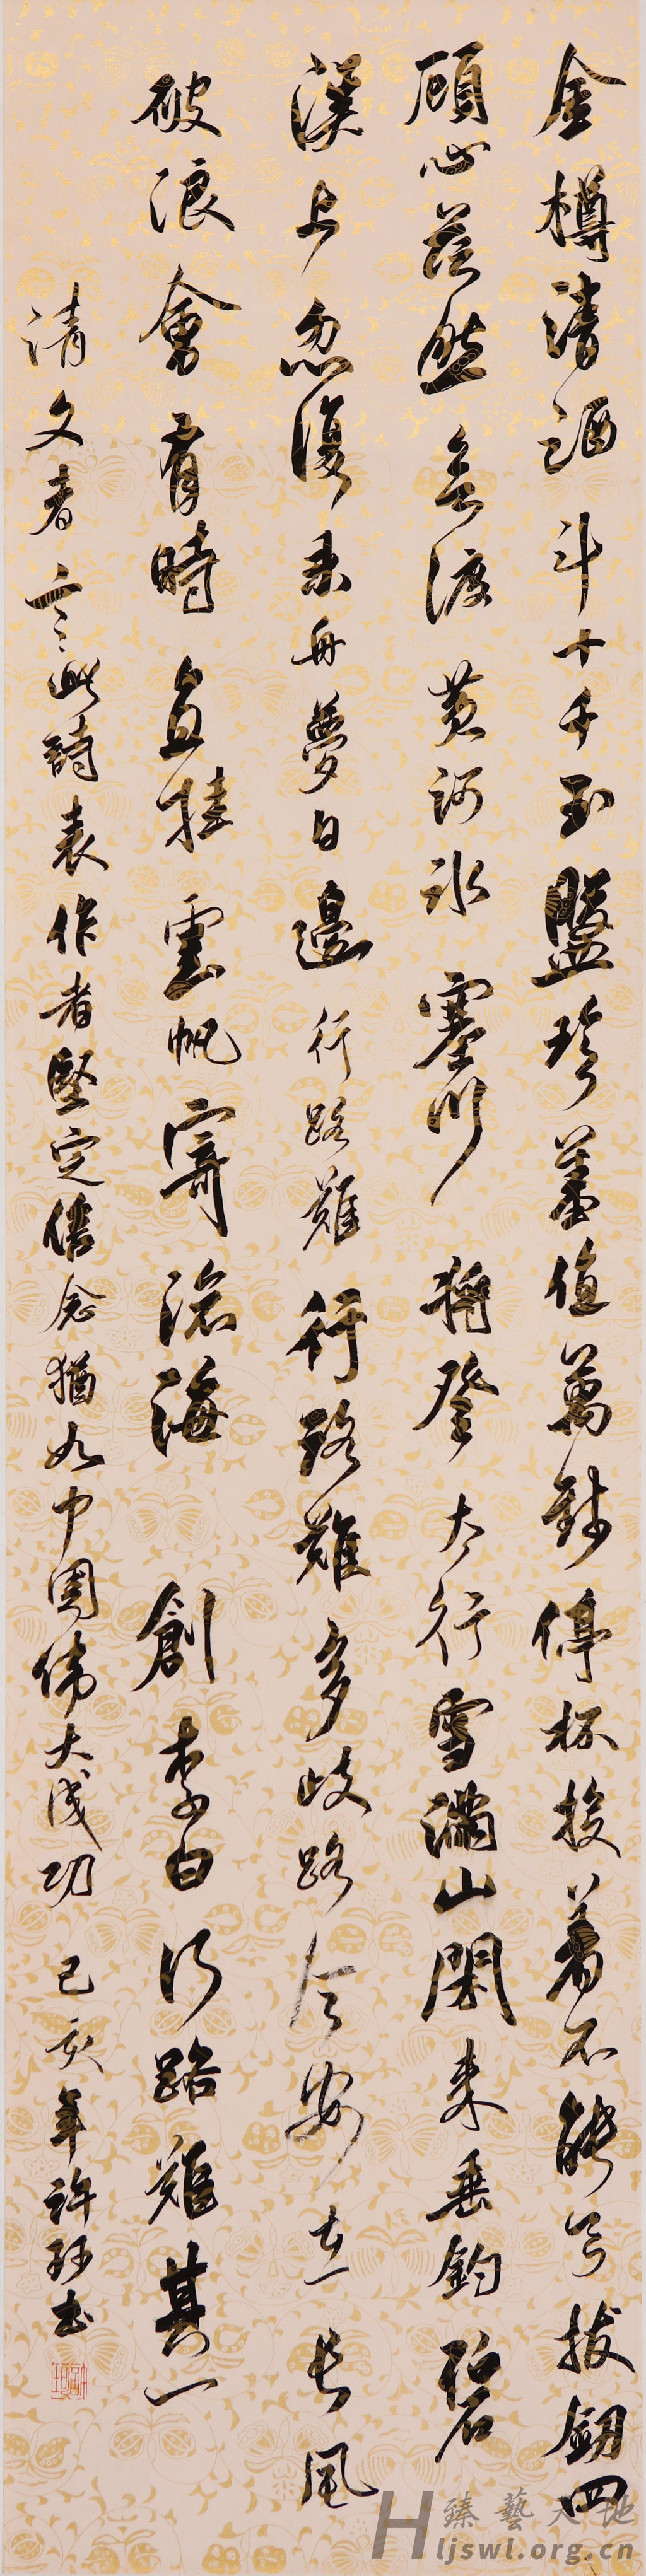 金樽清酒斗十千玉盤珍羞值萬錢停杯投箸不能食拔劍四
顧心茫然渡黃河冰塞川將登太行雪滿山閑來垂釣碧
溪上忽復乘舟夢日邊行路難行路難多歧路今安在長風
破浪會有時直挂雲帆寄滄海 創李白行路難其一
清文者言此詩表作者堅定信念猶如中國偉大成功 己亥年許書
臻藝天地
Hljswl.org.cn